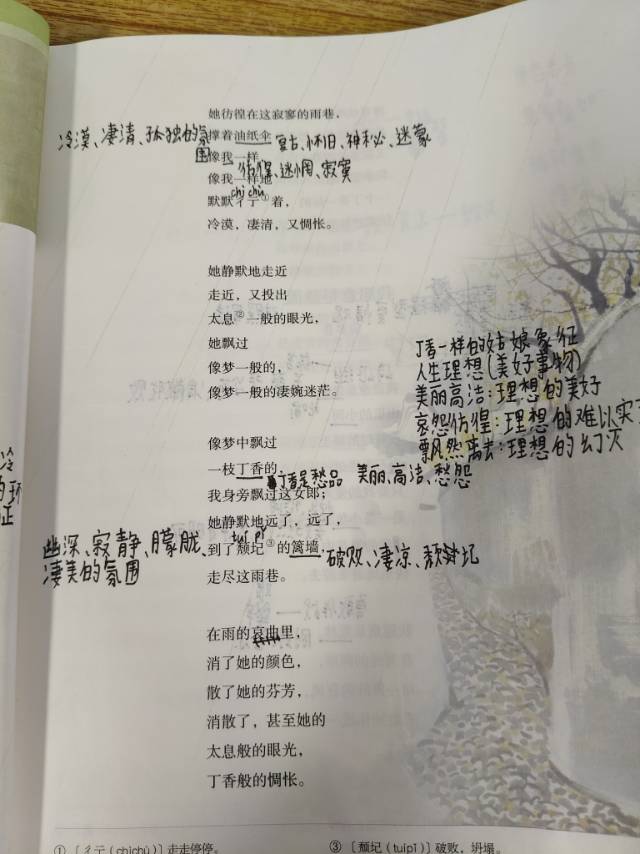 她彷徨在这寂寥的雨巷，
冷漠、凄清、孤独的氛围
撑着油纸伞 复古、怀旧、神秘、迷蒙
像我一样，
彷徨、迷惘、寂寞
像我一样地
chì chù
默默彳亍①着，
冷漠，凄清，又惆怅。
她静默地走近
走近，又投出
太息②一般的眼光，
她飘过
像梦一般的，
像梦一般的凄婉迷茫。
丁香一样的姑娘象征
人生理想(美好事物)
美丽高洁:理想的美好
哀怨彷徨:理想的难以实
飘然离去:理想的幻灭
像梦中飘过
一枝丁香的，
丁香是愁品 美丽、高洁、愁怨
我身旁飘过这女郎；
她静默地远了，远了，
tuí pǐ
到了颓圮③的篱墙，
破败、凄凉、颓圮
走尽这雨巷。
幽深、寂静、朦胧、
凄美的氛围
冷
的环
征
在雨的哀曲里，
消了她的颜色，
散了她的芬芳，
消散了，甚至她的
太息般的眼光，
丁香般的惆怅。
① 〔彳亍(chìchù)〕走走停停。
③ 〔颓圮(tuípǐ)〕破败，坍塌。